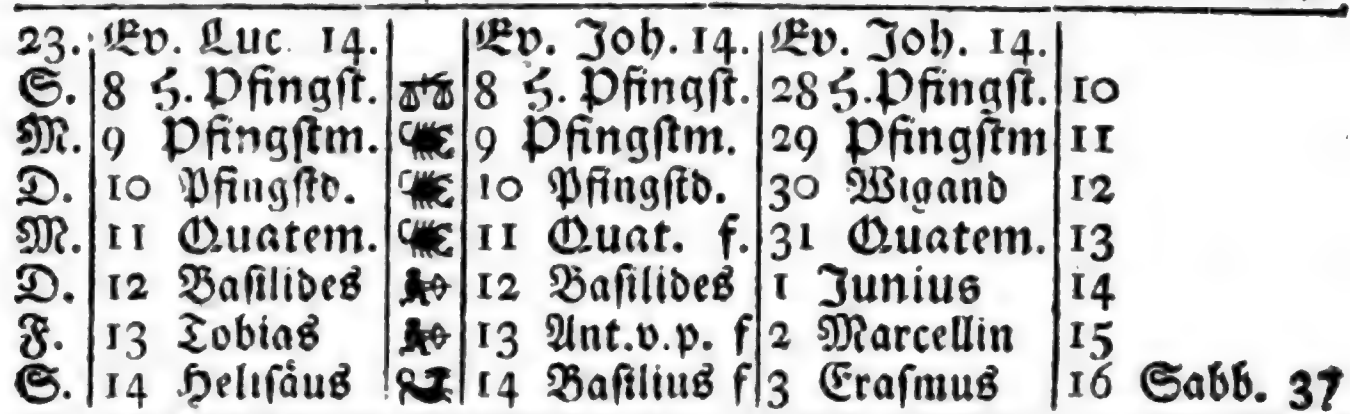 23. Ev. Luc. 14. Ev. Joh. 14. Ev. Joh. 14.
S. 8 H. Pfingſt. 8 H. Pfingſt. 28 H. Pfingſt. 10
M. 9 Pfingſtm. 9 Pfingſtm. 29 Pfingſtm 11
D. 10 Pfingſtd. 10 Pfingſtd. 30 Wigand 12
M. 11 Quatem. 11 Quat. f. 31 Quatem. 13
D. 12 Baſilides 12 Baſilides 1 Junius 14
F. 13 Tobias 13 Ant.v.p. f 2 Marcellin 15
S. 14 Heliſäus 14 Baſilius f 3 Eraſmus 16 Sabb. 37